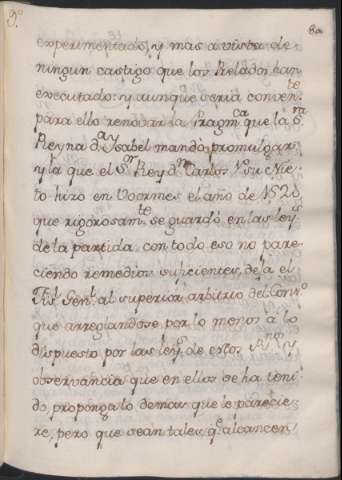 9.º
80
experimentado, y mas a vista de
ningun castigo que los Prelados han
executado: y aunque seria conven.te
para ello renovar la Pragm.ca que la S.ra
Reyna d.a Ysabel mandó promulgar,
y la que el S.or Rey d.n Carlos 1.º su Nie-
to hizo en Voormes el año de 1520
que rigorosam.te se guardó en las ley.s
de la partida con todo eso no pare-
ciendo remedios suficientes, deja el
Fis.l Gen.l al superior arbitrio del Cons.º
que arreglandose por lo menos á lo
dispuesto por las ley.s de estos R.nos y
observancia que en ellos se ha teni-
do, proponga lo demas que le parecie-
re, pero que sean tales q.e alcancen